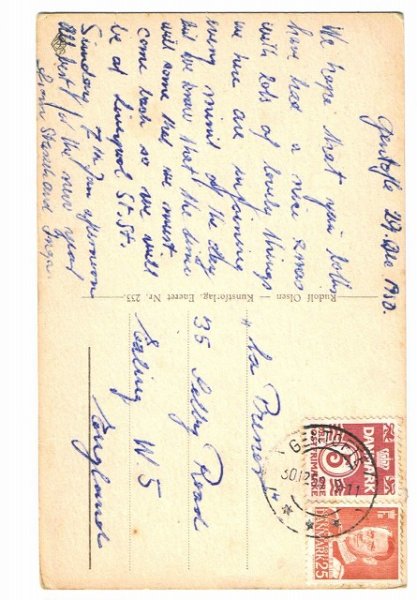 Gentofte 29. Dec 1950.
We hope that you both
have had a nice Xmas
with lots of lovely things
we here are enjoying
every minut of the day
but we know that the time
will come that we must
come back so we will
be at Liverpool St. St.
Sunday 7th Jan afternoon
All best for the new year
from Steen and Inga.
Rudolf Olsen — Kunstforlag, Eneret Nr. 255.
35 Selby Road
Ealing W. 5
England
GENTOFTE
30.12
DANMARK
POSTFRIMÆRKE
DANMARK
25